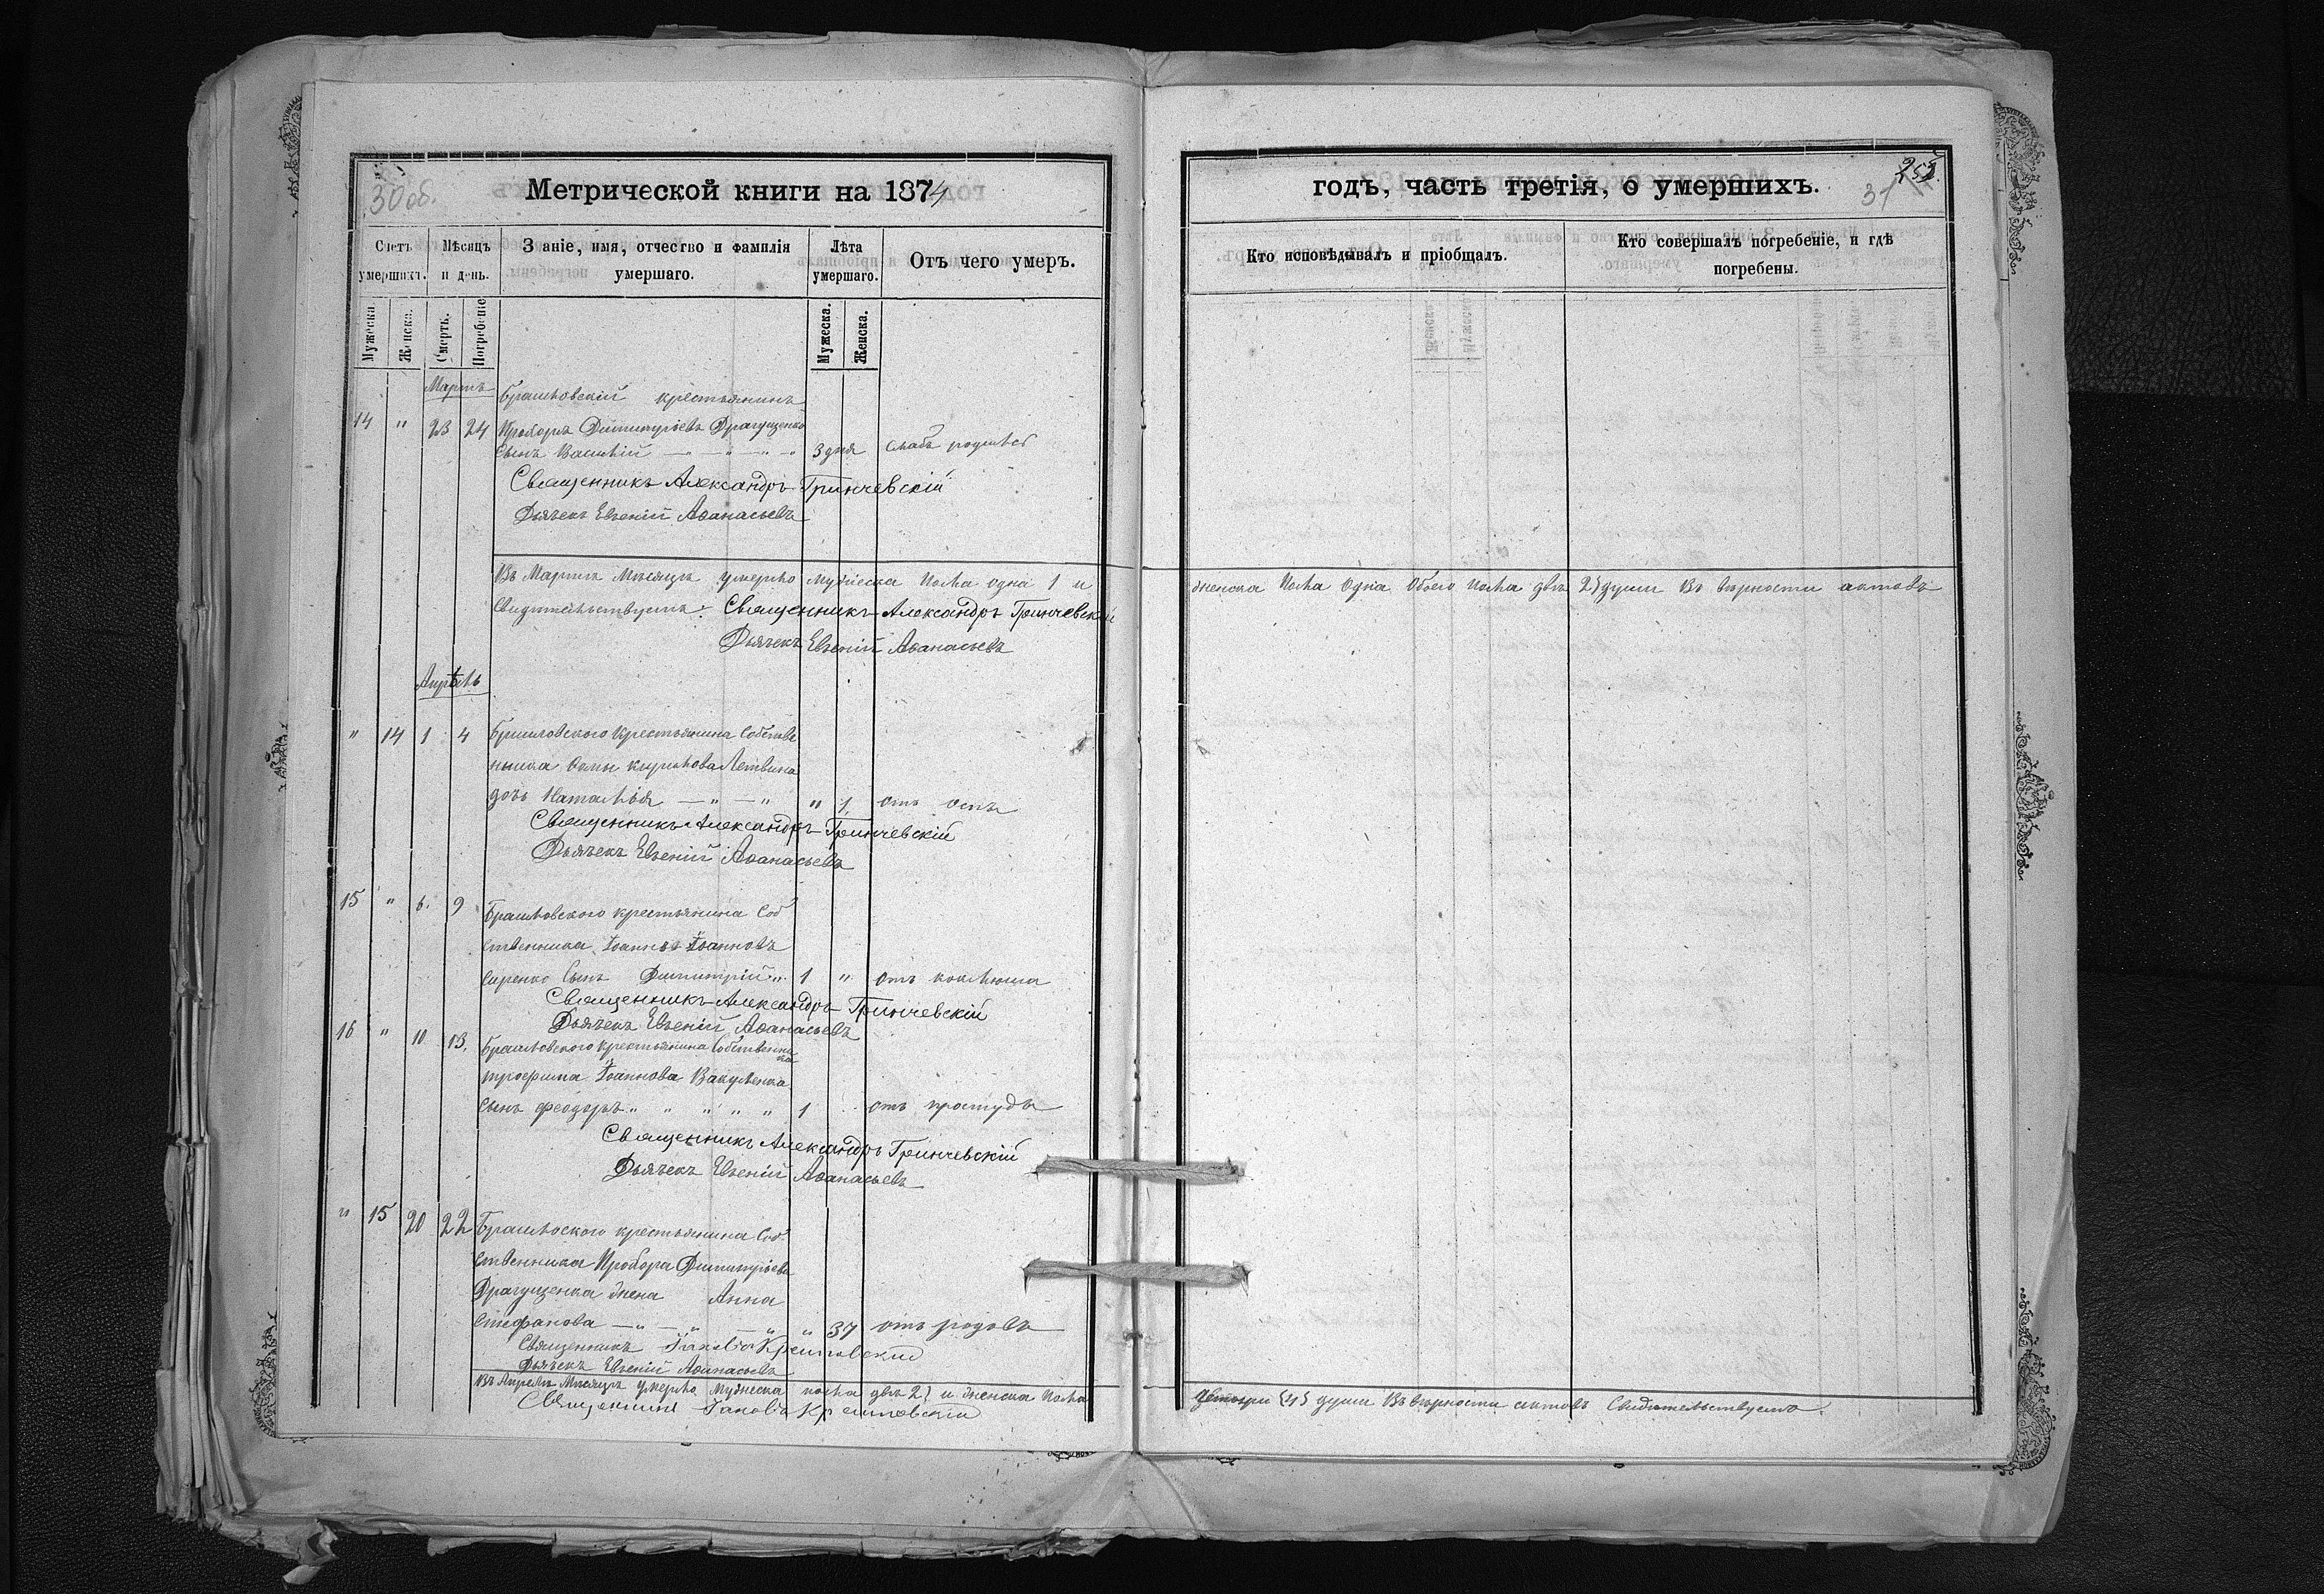 30 об.
Метрической книги на 1874
Счетъ умершихъ.
Мѣсяцъ и день.
Званіе, имя, отчество и фамилія умершаго.
Лѣта умершаго.
Отъ чего умеръ.
Мужеска
Женска.
Смерть.
Погребеніе
Мужеска.
Женска.
Мартъ
14 " 23 24
крестьянинъ
Прохоръ Димитріевъ Драгущенко
Сынъ Василій — " — " — " 3 дня слабъ родился
Священникъ Александръ Гринчевскій
Дьячекъ Евгеній Аѳанасьевъ
Въ Мартѣ Мѣсяцѣ умерло мужеска пола одна 1 и
Свидѣтельствуемъ: Священникъ Александръ Гринчевскій
Дьячекъ Евгеній Аѳанасьевъ
Апрѣль
" 14 1 4 крестьянина Собстве
нника Ѳомы Кирилова Летвина
дочь Наталія — " — " " 1 отъ оспы
Священникъ Александръ Гринчевскій
Дьячекъ Евгеній Аѳанасьевъ
15 " 6. 9 Браиловского крестьянина Соб
ственника Іоанна Іоаннова
Сиренко Сынъ Димитрій " 1 " отъ коклюша
Священникъ Александръ Гринчевскій
Дьячекъ Евгеній Аѳанасьевъ
16 " 10 13. Браиловского крестьянина Собственника
трофима Іоаннова Вакуленка
Сынъ Феодоръ " " " " " 1 отъ простуды
Священникъ Александръ Гринчевскій
Дьячекъ Евгеній Аѳанасьевъ
" 15 20 22 крестьянина Соб-
ственника Прохора Димитріева
Драгущенка жена Анна
Стефанова — " — " — " " 37 отъ родовъ
Священникъ Іаковъ
Дьячекъ Евгеній Аѳанасьевъ
Въ Апрѣлѣ Мѣсяцѣ умерло Мужеска пола двѣ 2) и женска пола
Священникъ Іаковъ
255.
31
годъ, часть третія, о умершихъ.
Кто исповѣдывалъ и пріобщалъ.
Кто совершалъ погребеніе, и гдѣ погребены.
женска пола одна обоего пола двѣ 2) души Въ вѣрности актовъ
четыри (4) души Въ вѣрности актовъ Свидѣтельствуемъ